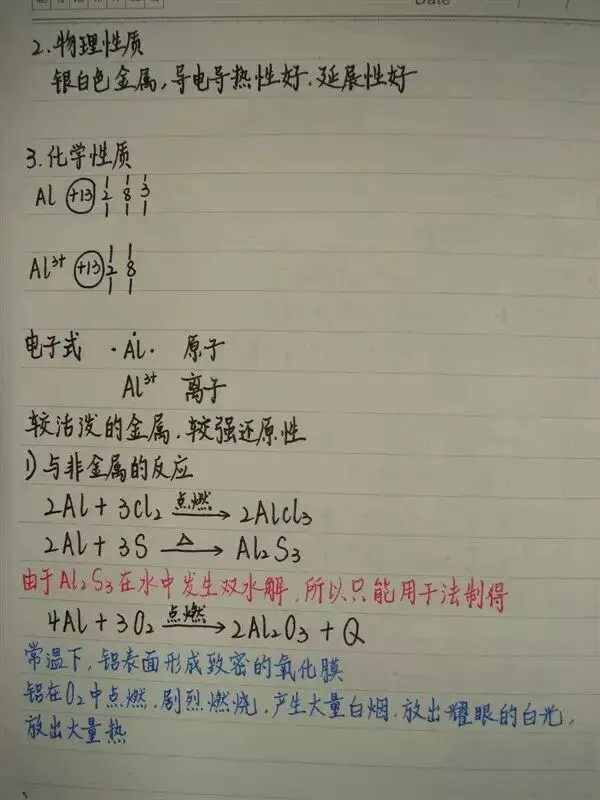 Date
2.物理性质
银白色金属,导电导热性好.延展性好
3.化学性质
Al +13 2 8 3
Al³⁺ +13 2 8
电子式 ·Al· 原子
Al³⁺ 离子
较活泼的金属.较强还原性
1)与非金属的反应
2Al+3Cl₂ 点燃→ 2AlCl₃
2Al+3S △→ Al₂S₃
由于Al₂S₃在水中发生双水解.所以只能用干法制得
4Al+3O₂ 点燃→ 2Al₂O₃+Q
常温下,铝表面形成致密的氧化膜
铝在O₂中点燃,剧烈燃烧,产生大量白烟.放出耀眼的白光,
放出大量热